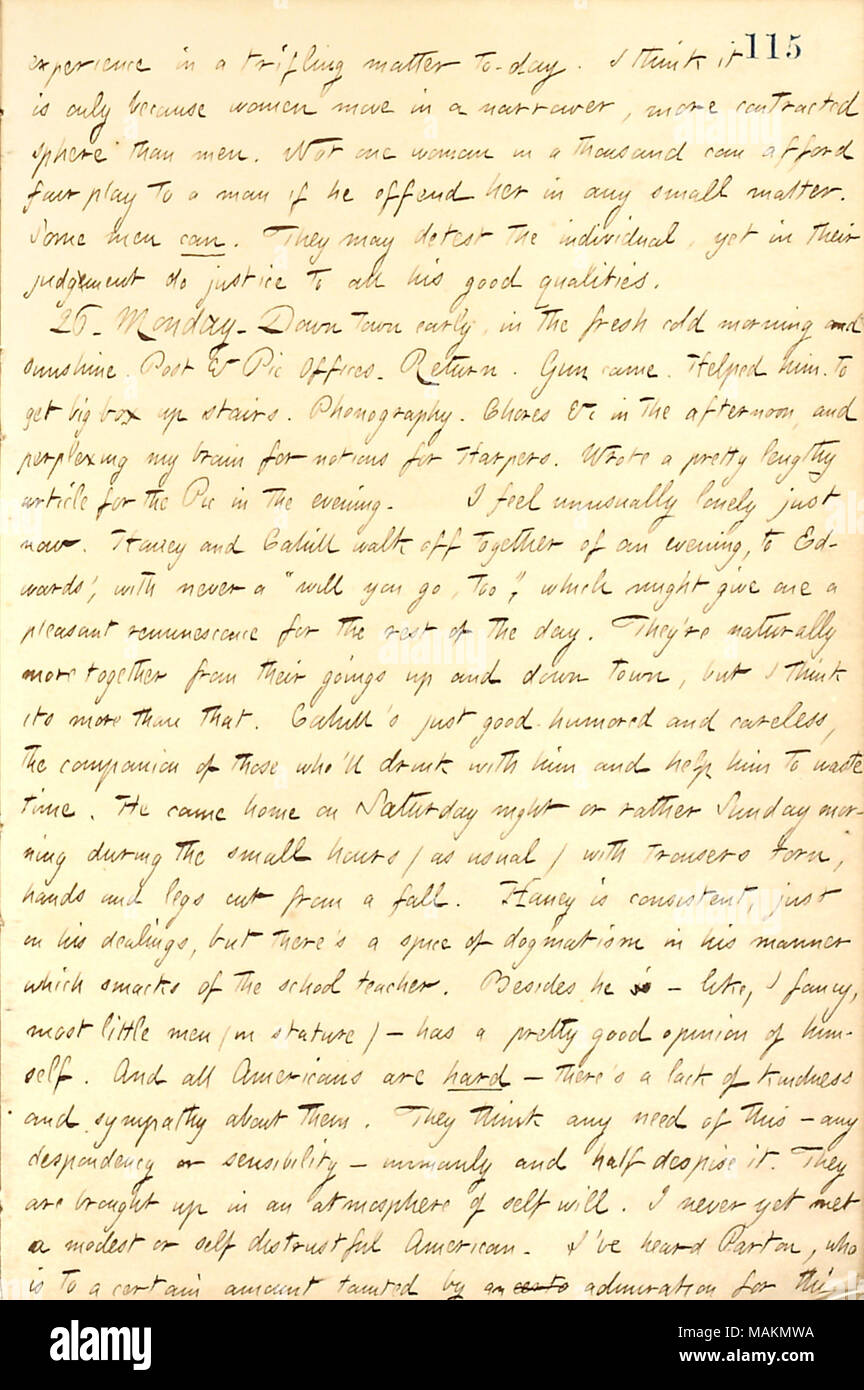 115
experience in a trifling matter to-day. I think it
is only because women move in a narrower, more contracted
sphere than men. Not one woman in a thousand can afford
fair play to a man if he offend her in any small matter.
Some men can. They may detest the individual, yet in their
judgement do justice to all his good qualities.
26. Monday. Down town early, in the fresh cold morning and
sunshine. Post & Pic Offices. Return. Gun came. Helped him to
get big box up stairs. Phonography. Chores &c in the afternoon, and
perplexing my brain for notions for Harpers. Wrote a pretty lengthy
article for the Pic in the evening. I feel unusually lonely just
now. Haney and Cahill walk off together of an evening, to Ed-
wards', with never a "will you go, too", which might give one a
pleasant reminescence for the rest of the day. They're naturally
more together from their goings up and down town, but I think
its more than that. Cahill's just good-humored and careless,
the companion of those who'll drink with him and help him to waste
time. He came home on Saturday night or rather Sunday mor-
ning during the small hours (as usual) with trousers torn,
hands and legs cut from a fall. Haney is consistent, just
in his dealings, but there's a spice of dogmatism in his manner
which smacks of the school teacher. Besides he is - like, I fancy,
most little men (in stature) - has a pretty good opinion of him-
self. And all Americans are hard - there's a lack of kindness
and sympathy about them. They think any need of this - any
despondency or sensibility - unmanly and half despise it. They
are brought up in an atmosphere of self will. I never yet met
a modest or self distrustful American. I've heard Parton, who
is to a certain amount tainted by an admiration for this
alamy
Image ID: MAKMWA
www.alamy.com